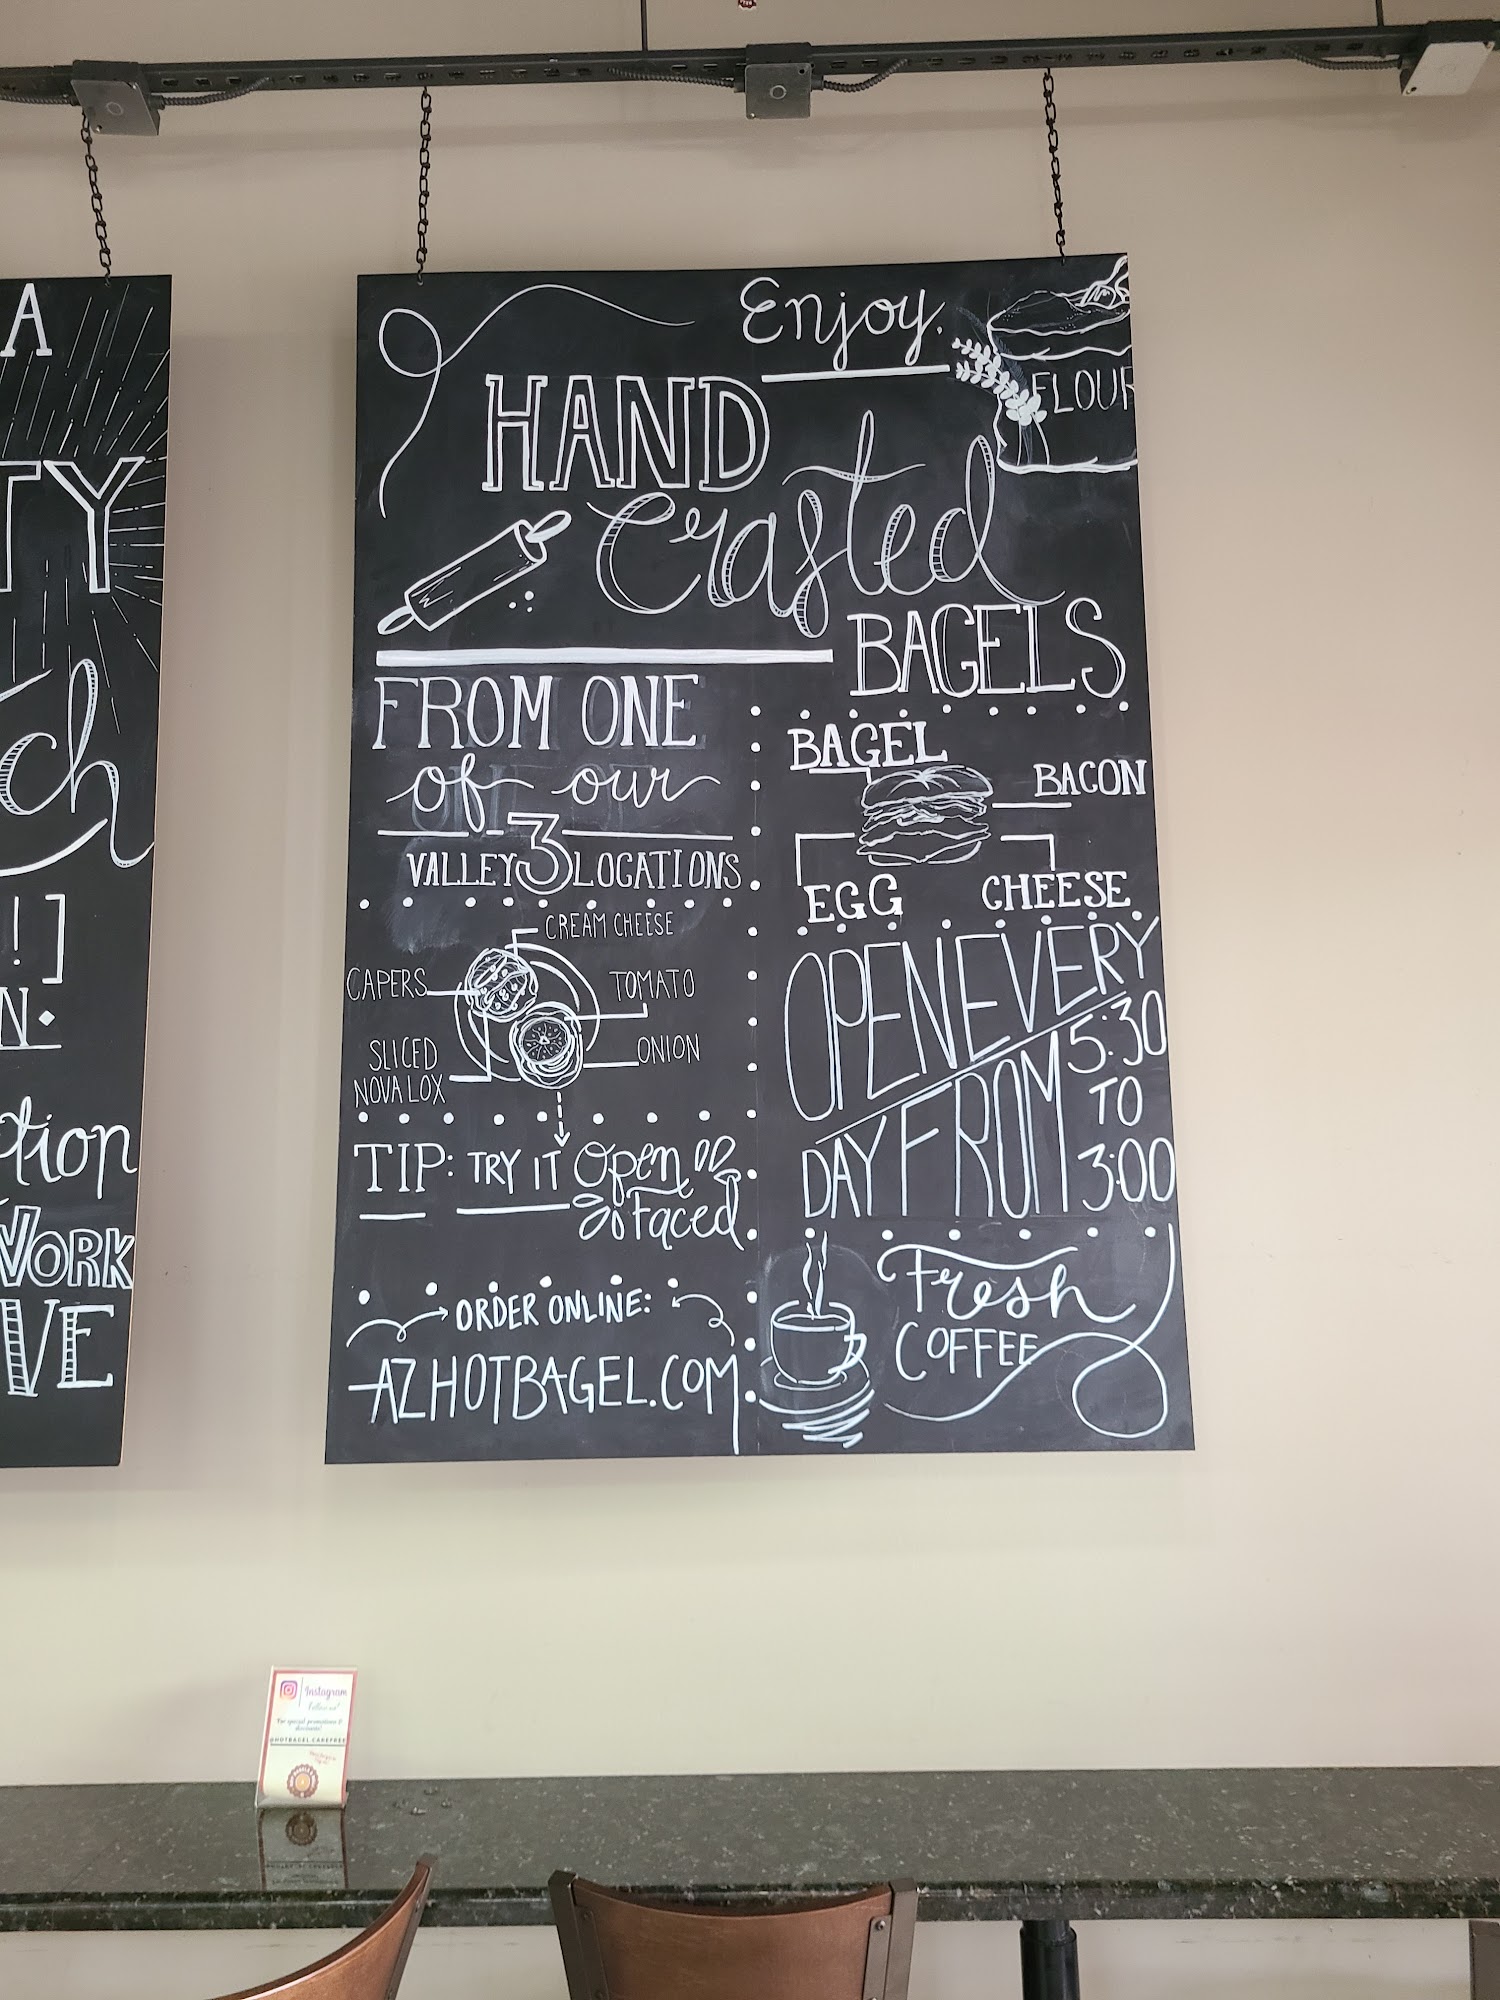 A
TY
ch
!]
N.
ction
WORK
VE
Enjoy.
FLOUR
HAND
Crafted
BAGELS
FROM ONE
of our
VALLEY 3 LOCATIONS
CREAM CHEESE
CAPERS
TOMATO
SLICED
NOVA LOX
ONION
TIP: TRY IT Open
Faced
ORDER ONLINE:
AZHOTBAGEL.COM
BAGEL
BACON
EGG
CHEESE
OPEN EVERY
DAY FROM
5:30
TO
3:00
Fresh
COFFEE
Instagram
Follow us!
For special promotions &
discounts!
@HOTBAGEL.CAREFREE